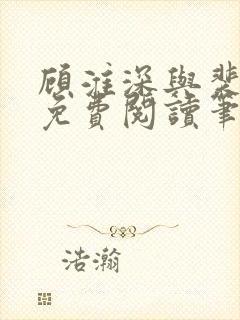 顾淮深与裴
免费阅读笔
浩瀚